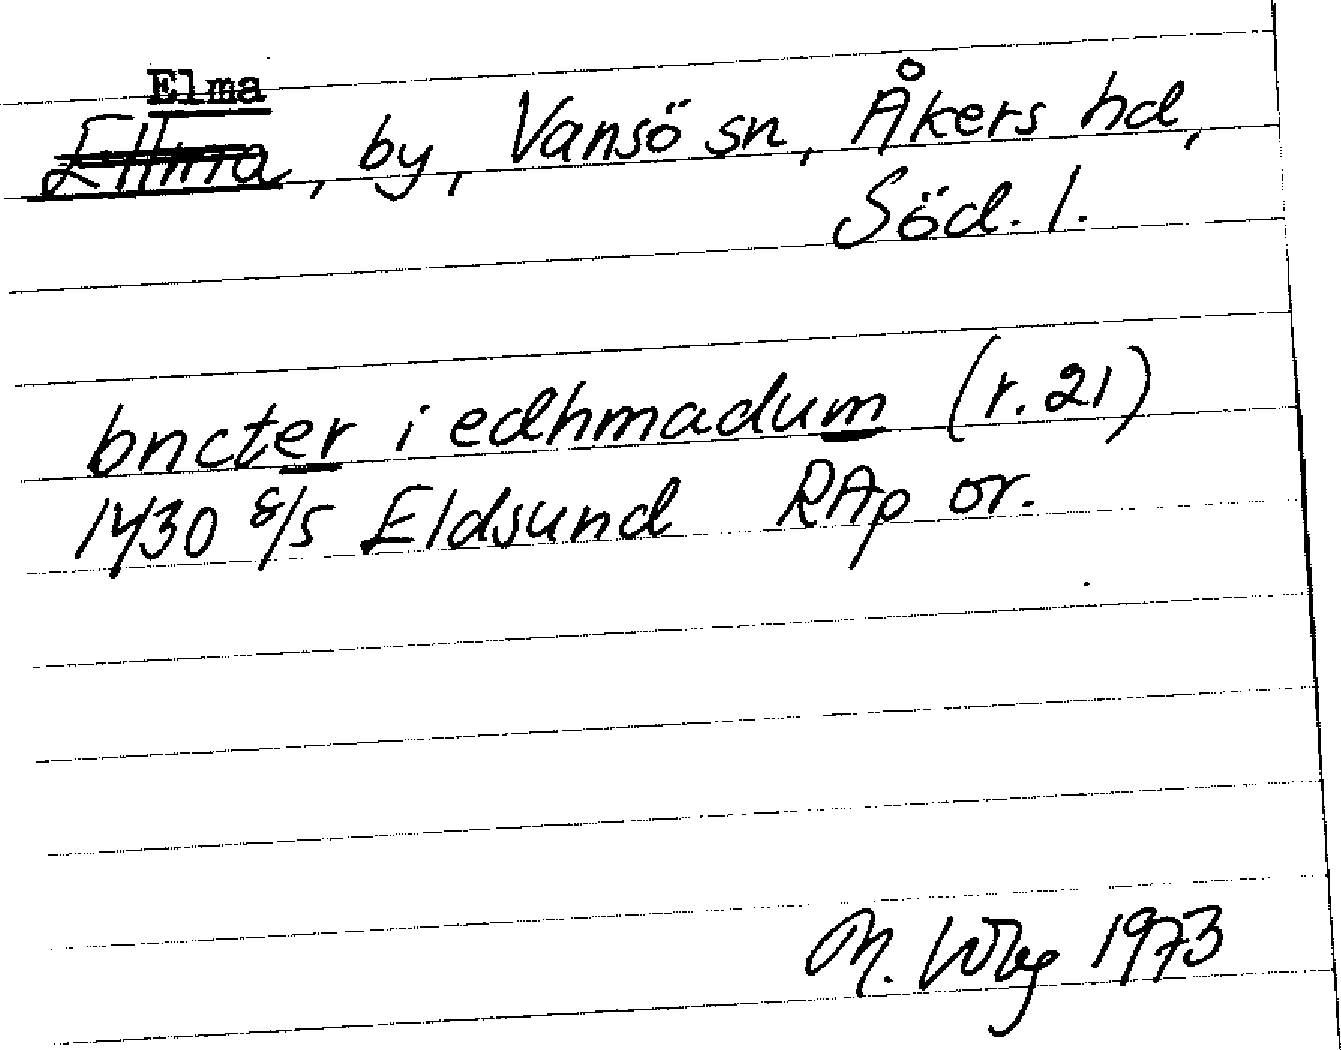 Elma
Ellma, by, Vansö sn, Åkers hd,
Söd. l.
bncter i edhmadum (r. 21)
1430 8/5 Eldsund RAp or.
M. Wbg 1973